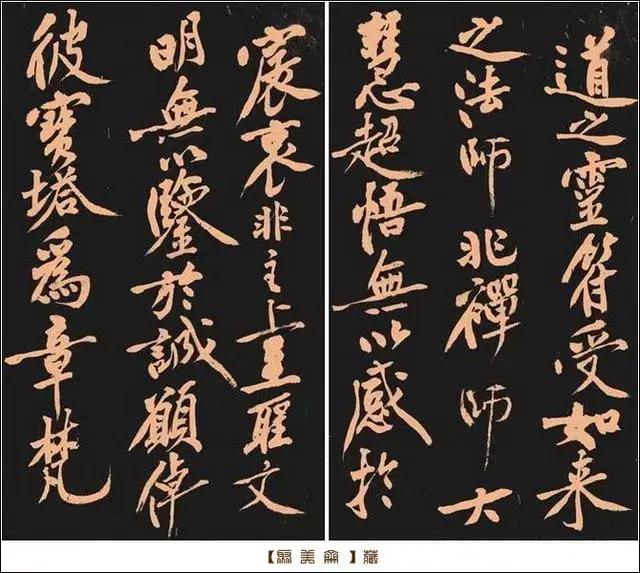 道之靈符受如来
之法師非禪師大
慧超悟無以感於
宸衷非主上至聖文
明無以鑒於誠願倬
彼寶塔為章梵
【馭美龠】藏